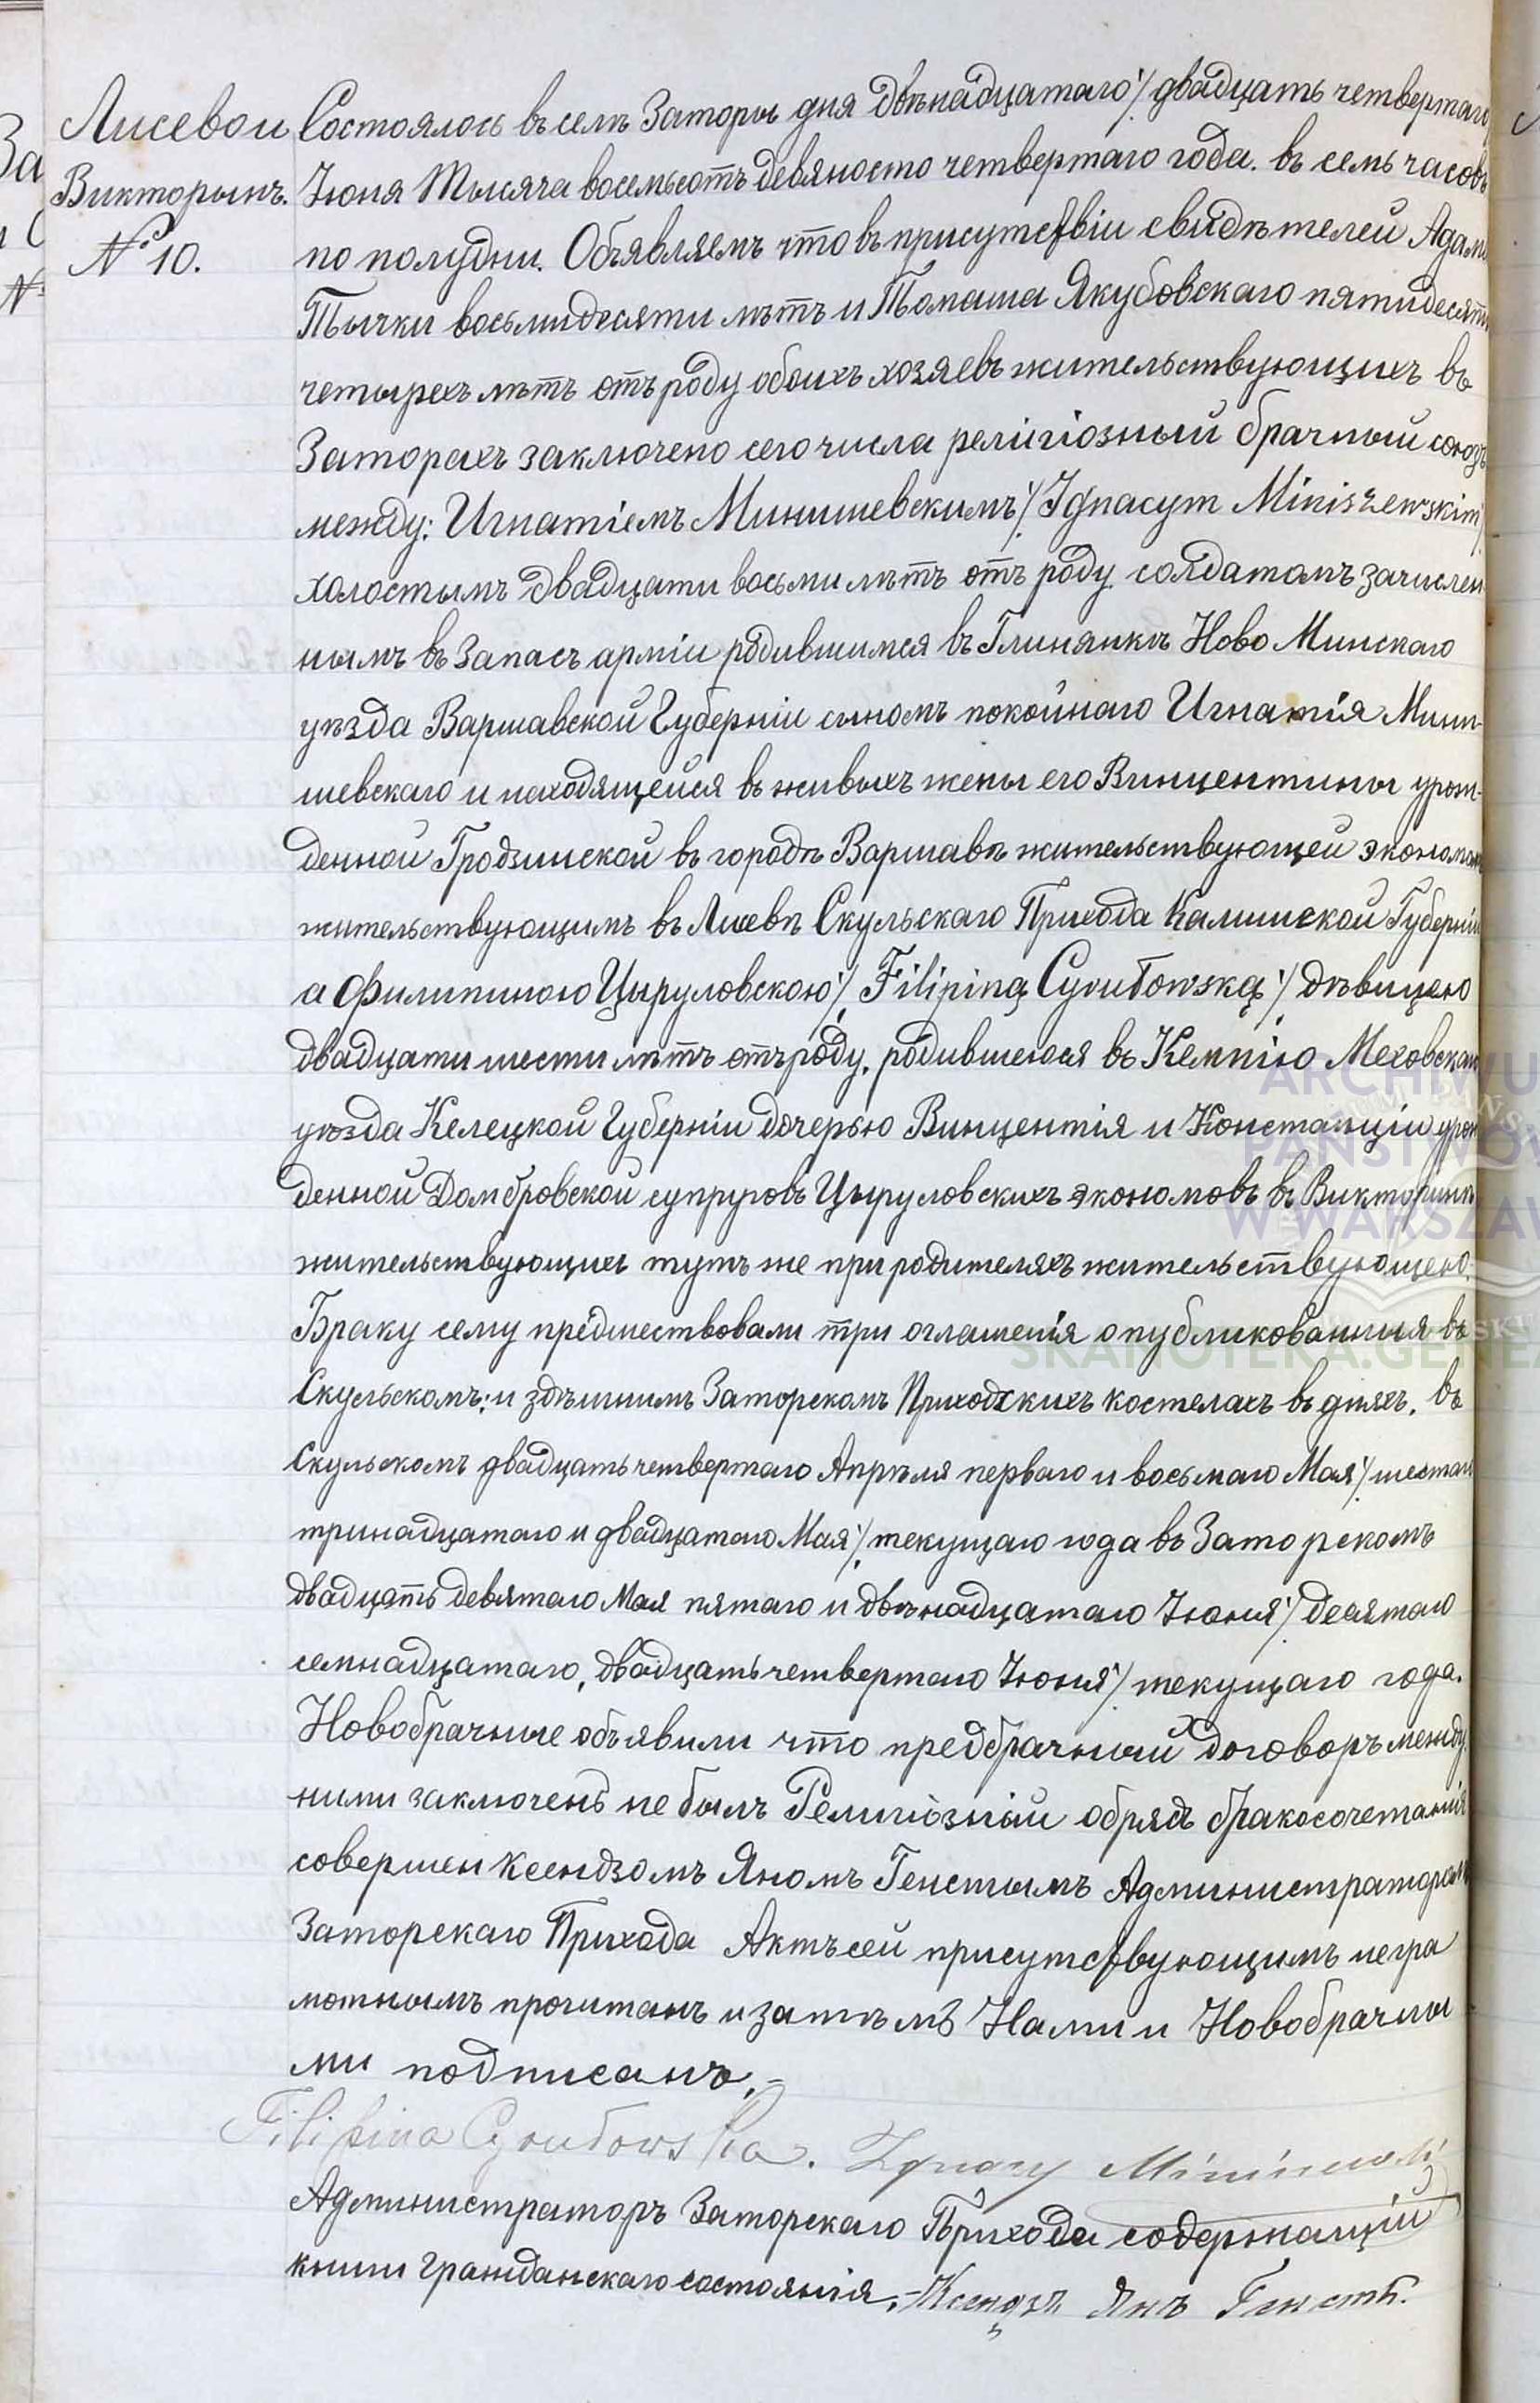 Лисевои
Викторынъ.
№ 10.
Состоялось въ селѣ Заторы дня двѣнадцатаго/ двадцать четвертаго
Іюня Тысяча восемьсотъ девяносто четвертаго года. въ семь часовъ
по полудни. Объявляемъ что въ присутствіи свидѣтелей Адама
Тычки восьмидесяти лѣтъ и Томаша Якубовскаго пятидесяти
четырехъ лѣтъ отъ роду обоихъ хозяевъ жительствующихъ въ
Заторахъ заключено сего числа религіозный брачный союзъ
между: Игнатіемъ Минишевскимъ/ Ignacym Miniszewskim/
холостымъ двадцати восьми лѣтъ отъ роду солдатомъ зачислен
нымъ въ запасъ арміи родившимся въ Глинянкѣ Ново Минскаго
уѣзда Варшавской Губерніи сыномъ покойнаго Игнатія Мини-
шевскаго и находящейся въ живыхъ жены его Винцентины урож-
денной Гродзинской въ городѣ Варшавѣ жительствующей экономомъ
жительствующимъ въ Скульскаго Прихода Калишской Губерніи
а Филипиною Цыруловскою/ Filipiną Cyrułowską/ дѣвицею
двадцати шести лѣтъ отъ роду, родившеюся въ Кемпію Меховскаго
уѣзда Келецкой Губерніи дочерью Винцентія и Констанціи урож
денной Домбровской супруговъ Цыруловскихъ экономовъ въ Викторынѣ
жительствующихъ тутъ же при родителяхъ жительствующею.
Браку сему предшествовали три оглашенія опубликованныя въ
Скульскомъ: и здѣшнимъ Заторскомъ Приходскихъ костелахъ въ дняхъ. въ
Скульскомъ двадцать четвертаго Апрѣля перваго и восьмаго Мая/ шестаго
тринадцатаго и двадцатаго Мая/ текущаго года въ Заторскомъ
двадцать девятаго Мая пятаго и двѣнадцатаго Іюня/ десятаго
семнадцатаго, двадцать четвертаго Іюня/ текущаго года.
Новобрачные объявили что предбрачный договоръ между
ними заключенъ не былъ Религіозній обрядъ бракосочетанія
совершен Ксендзомъ Яномъ Генстымъ Администраторомъ
Заторскаго Прихода Актъ сей присутствующимъ негра
мотнымъ прочитанъ и затѣмъ Нами и Новобрачны
ми подписанъ.-
Filipina Cyrułowska. Ignacy
Администраторъ Заторскаго Прихода содержащій
книги гражданскаго состоянія.- Ксендзъ Янъ Генсты.
ARCHIWU
PAŃSTWOW
W WARSZAW
SKANOTEKA.GENEA